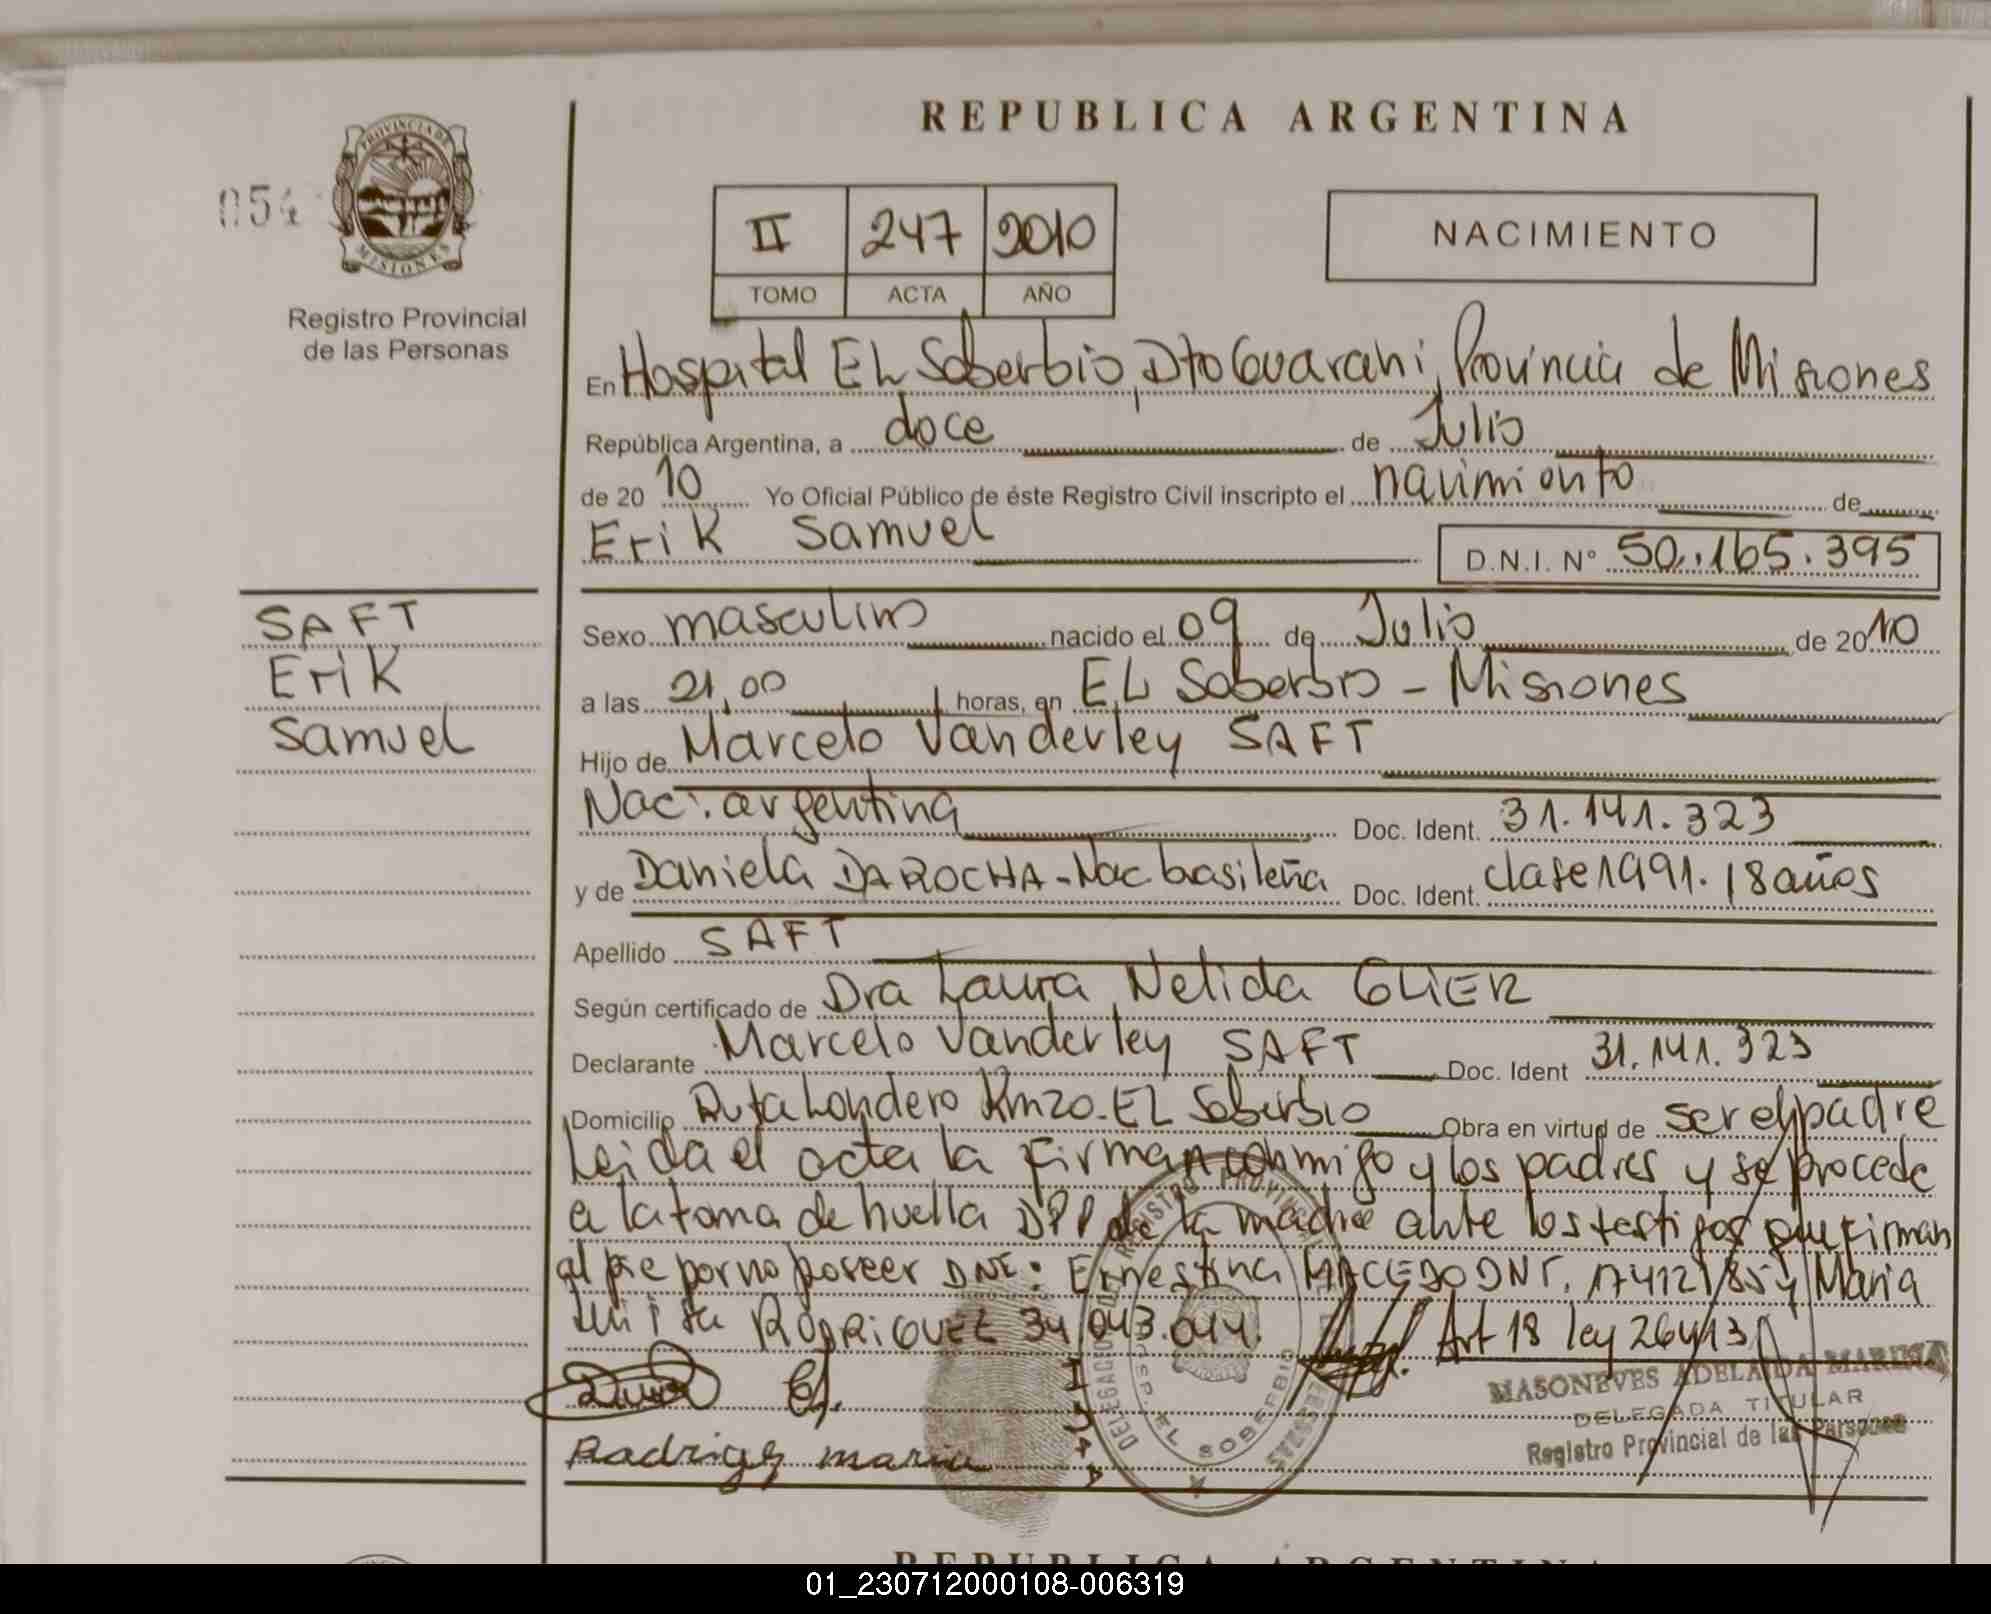 REPUBLICA ARGENTINA
054
PROVINCIA DE
MISIONES
Registro Provincial
de las Personas
II 247 2010
TOMO ACTA AÑO
NACIMIENTO
En Hospital EL Soberbio, Dto Guarani, Provincia de Misiones
República Argentina, a doce de Julio
de 20 10 Yo Oficial Público de éste Registro Civil inscripto el nacimiento de
Erik Samuel D.N.I. Nº 50.165.395
SAFT
Erik
Samuel
Sexo masculino nacido el 09 de Julio de 2010
a las 21,00 horas, en EL Soberbio - Misiones
Hijo de Marcelo Vanderley SAFT
Nac: argentina Doc. Ident. 31.141.323
y de Daniela DA ROCHA - Nac brasileña Doc. Ident. clase 1991. 18 años
Apellido SAFT
Según certificado de Dra Laura Nelida GLIER
Declarante Marcelo Vanderley SAFT Doc. Ident 31.141.323
Domicilio Ruta Londero Km20 - EL Soberbio Obra en virtud de ser el padre
Leida el acta la firman conmigo y los padres y se procede
a la toma de huella DPP de la madre ante los testigos que firman
al pie por no poseer DNI: Ernestina MACEDO DNI. 17412185 y Maria
Luisa RODRIGUEZ 34.043.044. Art 18 ley 26413
MASONEVES ADELAIDA MARINA
DELEGADA TITULAR
Registro Provincial de las Personas
Rodriguez maria
REGISTRO PROVINCIAL DE LAS PERSONAS
EL SOBERBIO
REPUBLICA ARGENTINA
01_230712000108-006319